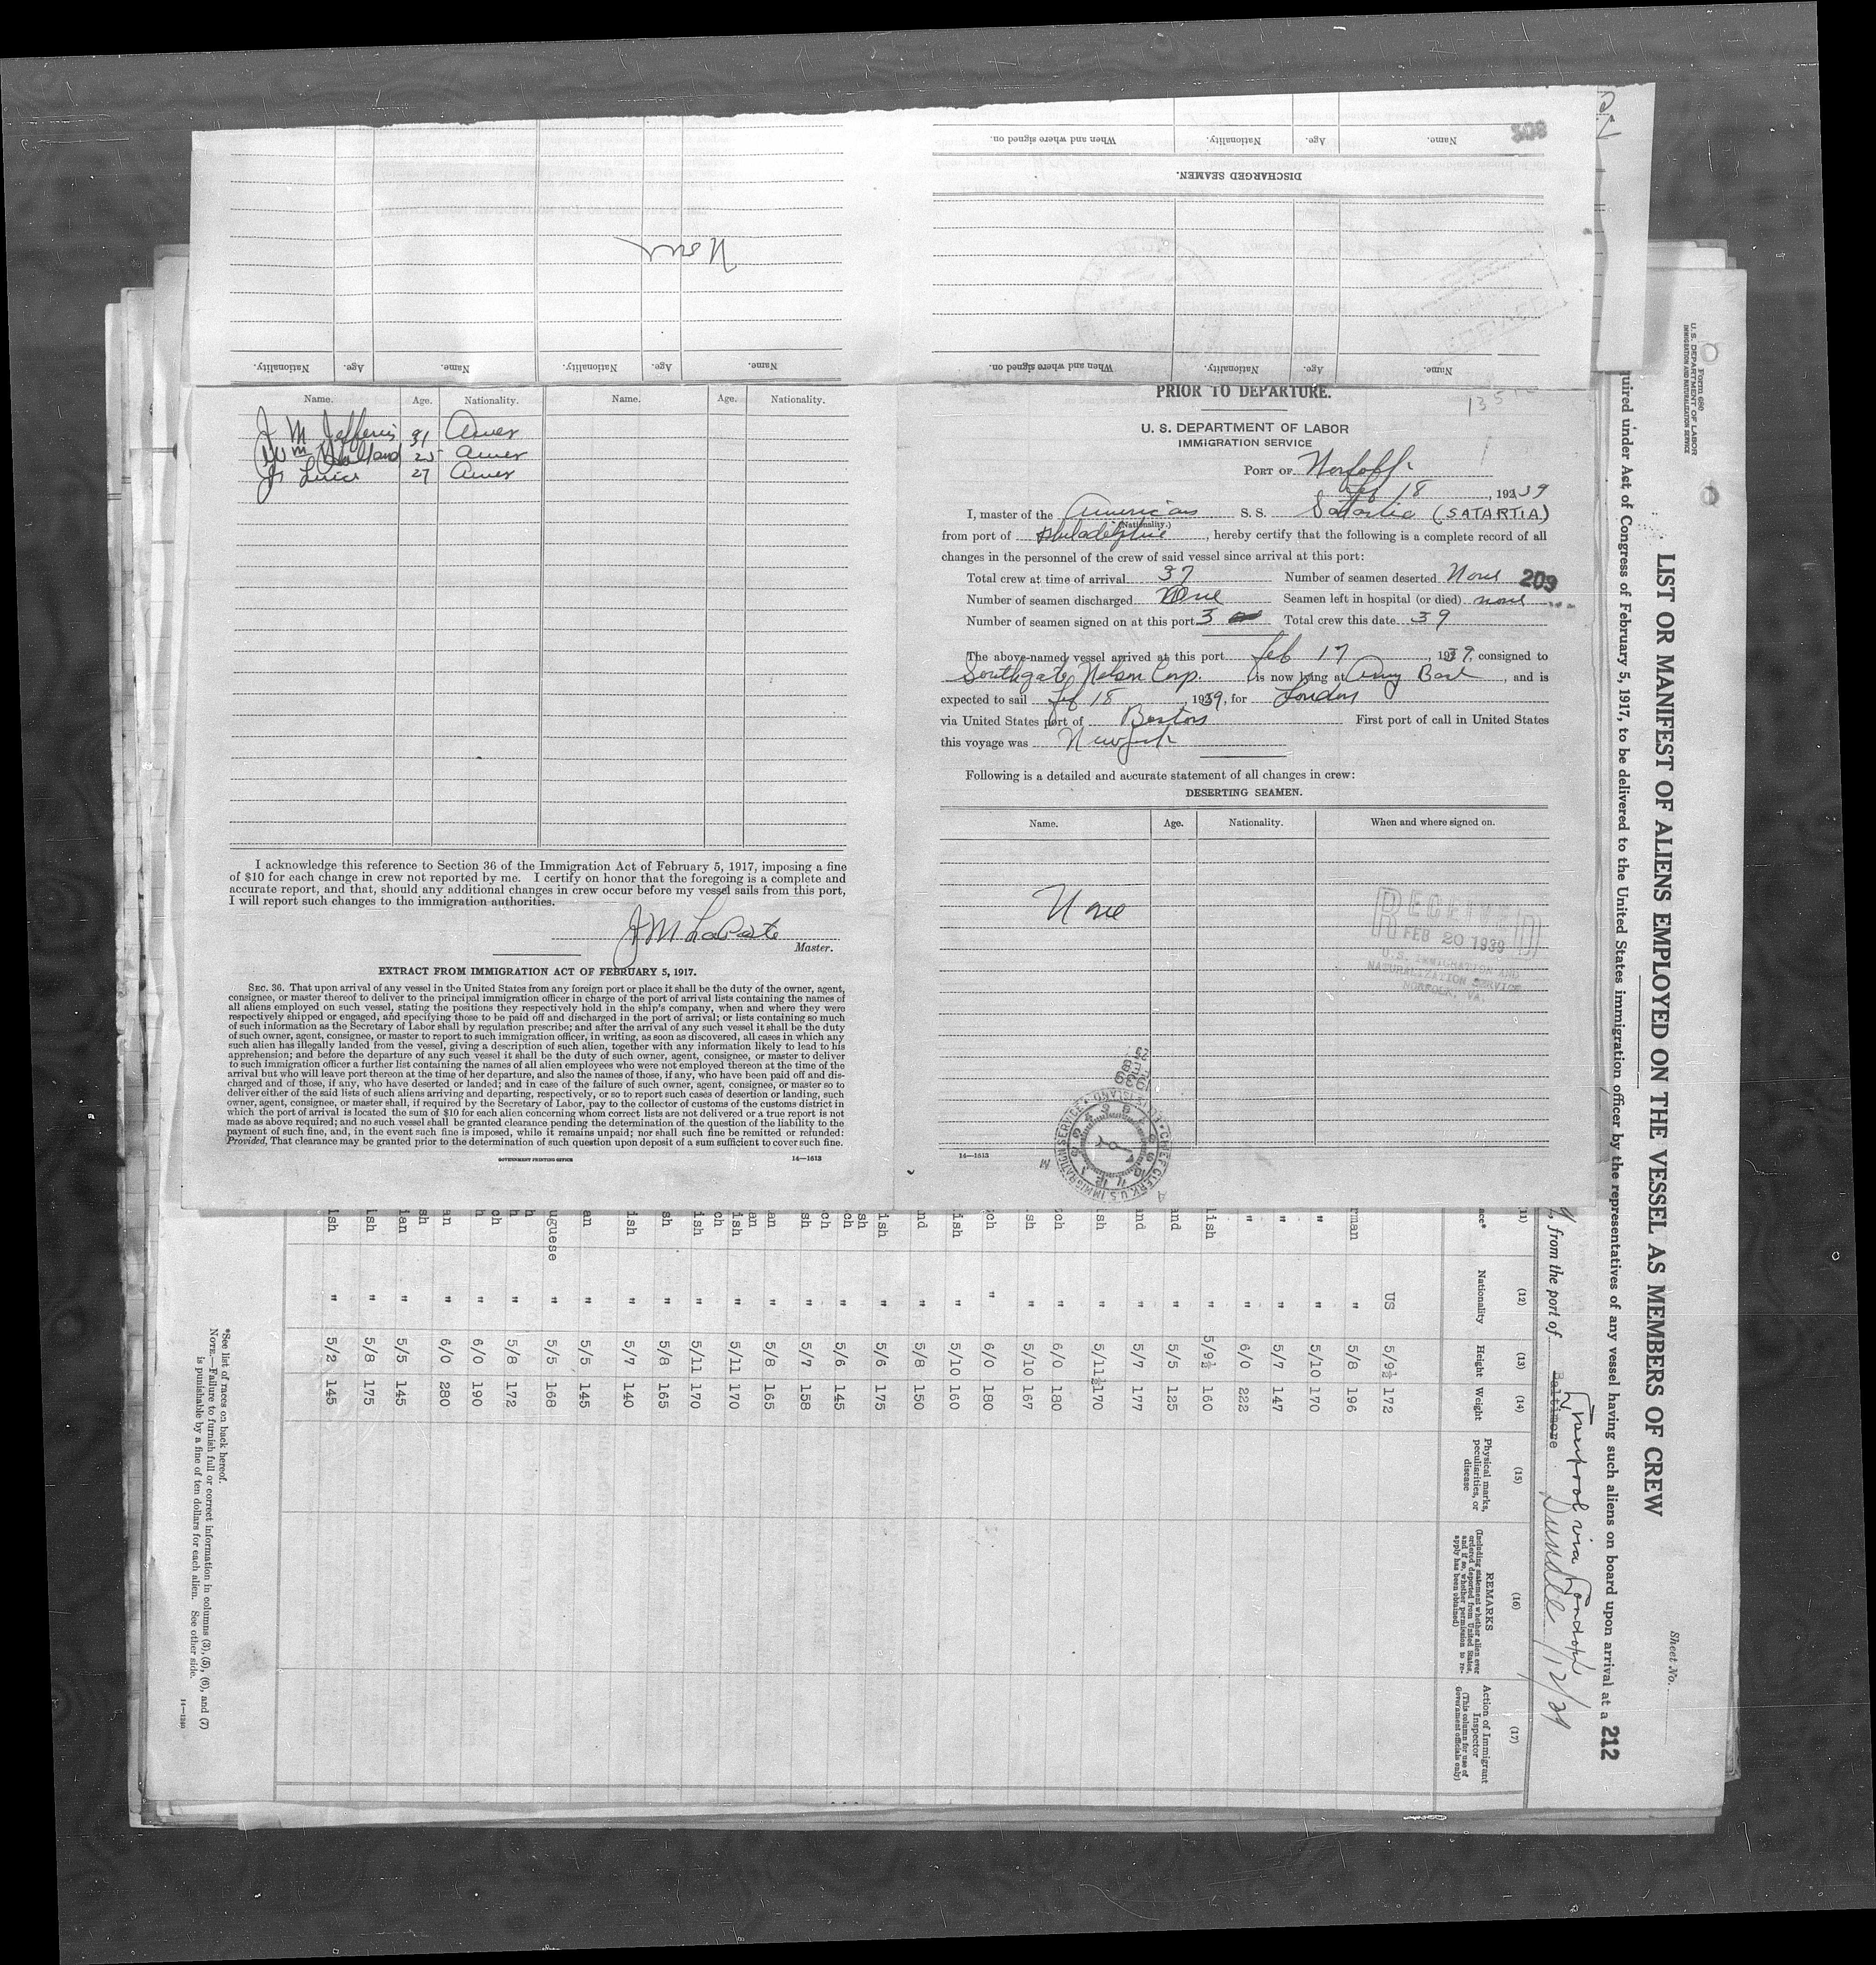 308
Name. Age. Nationality. When and where signed on.
DISCHARGED SEAMEN.
Name. Age. Nationality. When and where signed on.
Name. Age. Nationality. Name. Age. Nationality.
None
Name. Age. Nationality. Name. Age. Nationality.
J M Jefferis 31 Amer
Wm Holland 25 Amer
Amer
27
I acknowledge this reference to Section 36 of the Immigration Act of February 5, 1917, imposing a fine
of $10 for each change in crew not reported by me. I certify on honor that the foregoing is a complete and
accurate report, and that, should any additional changes in crew occur before my vessel sails from this port,
I will report such changes to the immigration authorities.
J M LaPorte
Master.
EXTRACT FROM IMMIGRATION ACT OF FEBRUARY 5, 1917.
SEC. 36. That upon arrival of any vessel in the United States from any foreign port or place it shall be the duty of the owner, agent,
consignee, or master thereof to deliver to the principal immigration officer in charge of the port of arrival lists containing the names of
all aliens employed on such vessel, stating the positions they respectively hold in the ship's company, when and where they were
respectively shipped or engaged, and specifying those to be paid off and discharged in the port of arrival; or lists containing so much
of such information as the Secretary of Labor shall by regulation prescribe; and after the arrival of any such vessel it shall be the duty
of such owner, agent, consignee, or master to report to such immigration officer, in writing, as soon as discovered, all cases in which any
such alien has illegally landed from the vessel, giving a description of such alien, together with any information likely to lead to his
apprehension; and before the departure of any such vessel it shall be the duty of such owner, agent, consignee, or master to deliver
to such immigration officer a further list containing the names of all alien employees who were not employed thereon at the time of the
arrival but who will leave port thereon at the time of her departure, and also the names of those, if any, who have been paid off and dis-
charged and of those, if any, who have deserted or landed; and in case of the failure of such owner, agent, consignee, or master so to
deliver either of the said lists of such aliens arriving and departing, respectively, or so to report such cases of desertion or landing, such
owner, agent, consignee, or master shall, if required by the Secretary of Labor, pay to the collector of customs of the customs district in
which the port of arrival is located the sum of $10 for each alien concerning whom correct lists are not delivered or a true report is not
made as above required; and no such vessel shall be granted clearance pending the determination of the question of the liability to the
payment of such fine, and, in the event such fine is imposed, while it remains unpaid; nor shall such fine be remitted or refunded:
Provided, That clearance may be granted prior to the determination of such question upon deposit of a sum sufficient to cover such fine.
GOVERNMENT PRINTING OFFICE 14—1613
PRIOR TO DEPARTURE.
U. S. DEPARTMENT OF LABOR
IMMIGRATION SERVICE
PORT OF Norfolk
Feb 18, 1939
I, master of the American S. S. Satartia (SATARTIA)
(Nationality.)
from port of Philadelphia, hereby certify that the following is a complete record of all
changes in the personnel of the crew of said vessel since arrival at this port:
Total crew at time of arrival 37 Number of seamen deserted None 209
Number of seamen discharged None Seamen left in hospital (or died) none
Number of seamen signed on at this port 3 Total crew this date 39
The above-named vessel arrived at this port Feb 17, 1939, consigned to
Southgate Nelson Corp. is now lying at Army Base, and is
expected to sail Feb 18, 1939, for London
via United States port of Boston First port of call in United States
this voyage was New York
Following is a detailed and accurate statement of all changes in crew:
DESERTING SEAMEN.
Name. Age. Nationality. When and where signed on.
None
RECEIVED
FEB 20 1939
U.S. IMMIGRATION AND
NATURALIZATION SERVICE
NORFOLK, VA.
CHIEF CLERK, U.S. IMMIGRATION SERVICE
14—1613
Form 680
U. S. DEPARTMENT OF LABOR
IMMIGRATION AND NATURALIZATION SERVICE
Sheet No.
LIST OR MANIFEST OF ALIENS EMPLOYED ON THE VESSEL AS MEMBERS OF CREW
quired under Act of Congress of February 5, 1917, to be delivered to the United States immigration officer by the representatives of any vessel having such aliens on board upon arrival at a 212
from the port of Baltimore Liverpool via London Dundee 1/12/39
(11) (12) (13) (14) (15) (16) (17)
ace* Nationality Height Weight Physical marks, peculiarities, or disease REMARKS (Including statement whether alien ever ordered deported from United States, and if so, whether permission to re-apply has been obtained) Action of Immigrant Inspector (This column for use of Government officials only)
US 5/9½ 172
rman " 5/8 196
" " 5/10 170
" " 5/7 147
" " 6/0 222
lish " 5/9½ 160
and " 5/5 125
and " 5/7 177
sh " 5/11½ 170
ch " 6/0 180
sh " 5/10 167
ch " 6/0 180
ish " 5/10 160
nd " 5/8 150
ish " 5/6 175
ch " 5/6 145
sh " 5/7 158
an " 5/8 165
ish " 5/11 170
ish " 5/11 170
sh " 5/8 165
ish " 5/7 140
an " 5/5 145
uguese " 5/5 168
h " 5/8 172
h " 6/0 190
an " 6/0 280
ian " 5/5 145
ish " 5/8 175
ish " 5/2 145
*See list of races on back hereof.
NOTE.—Failure to furnish full or correct information in columns (3), (5), (6), and (7)
is punishable by a fine of ten dollars for each alien. See other side.
14—1240